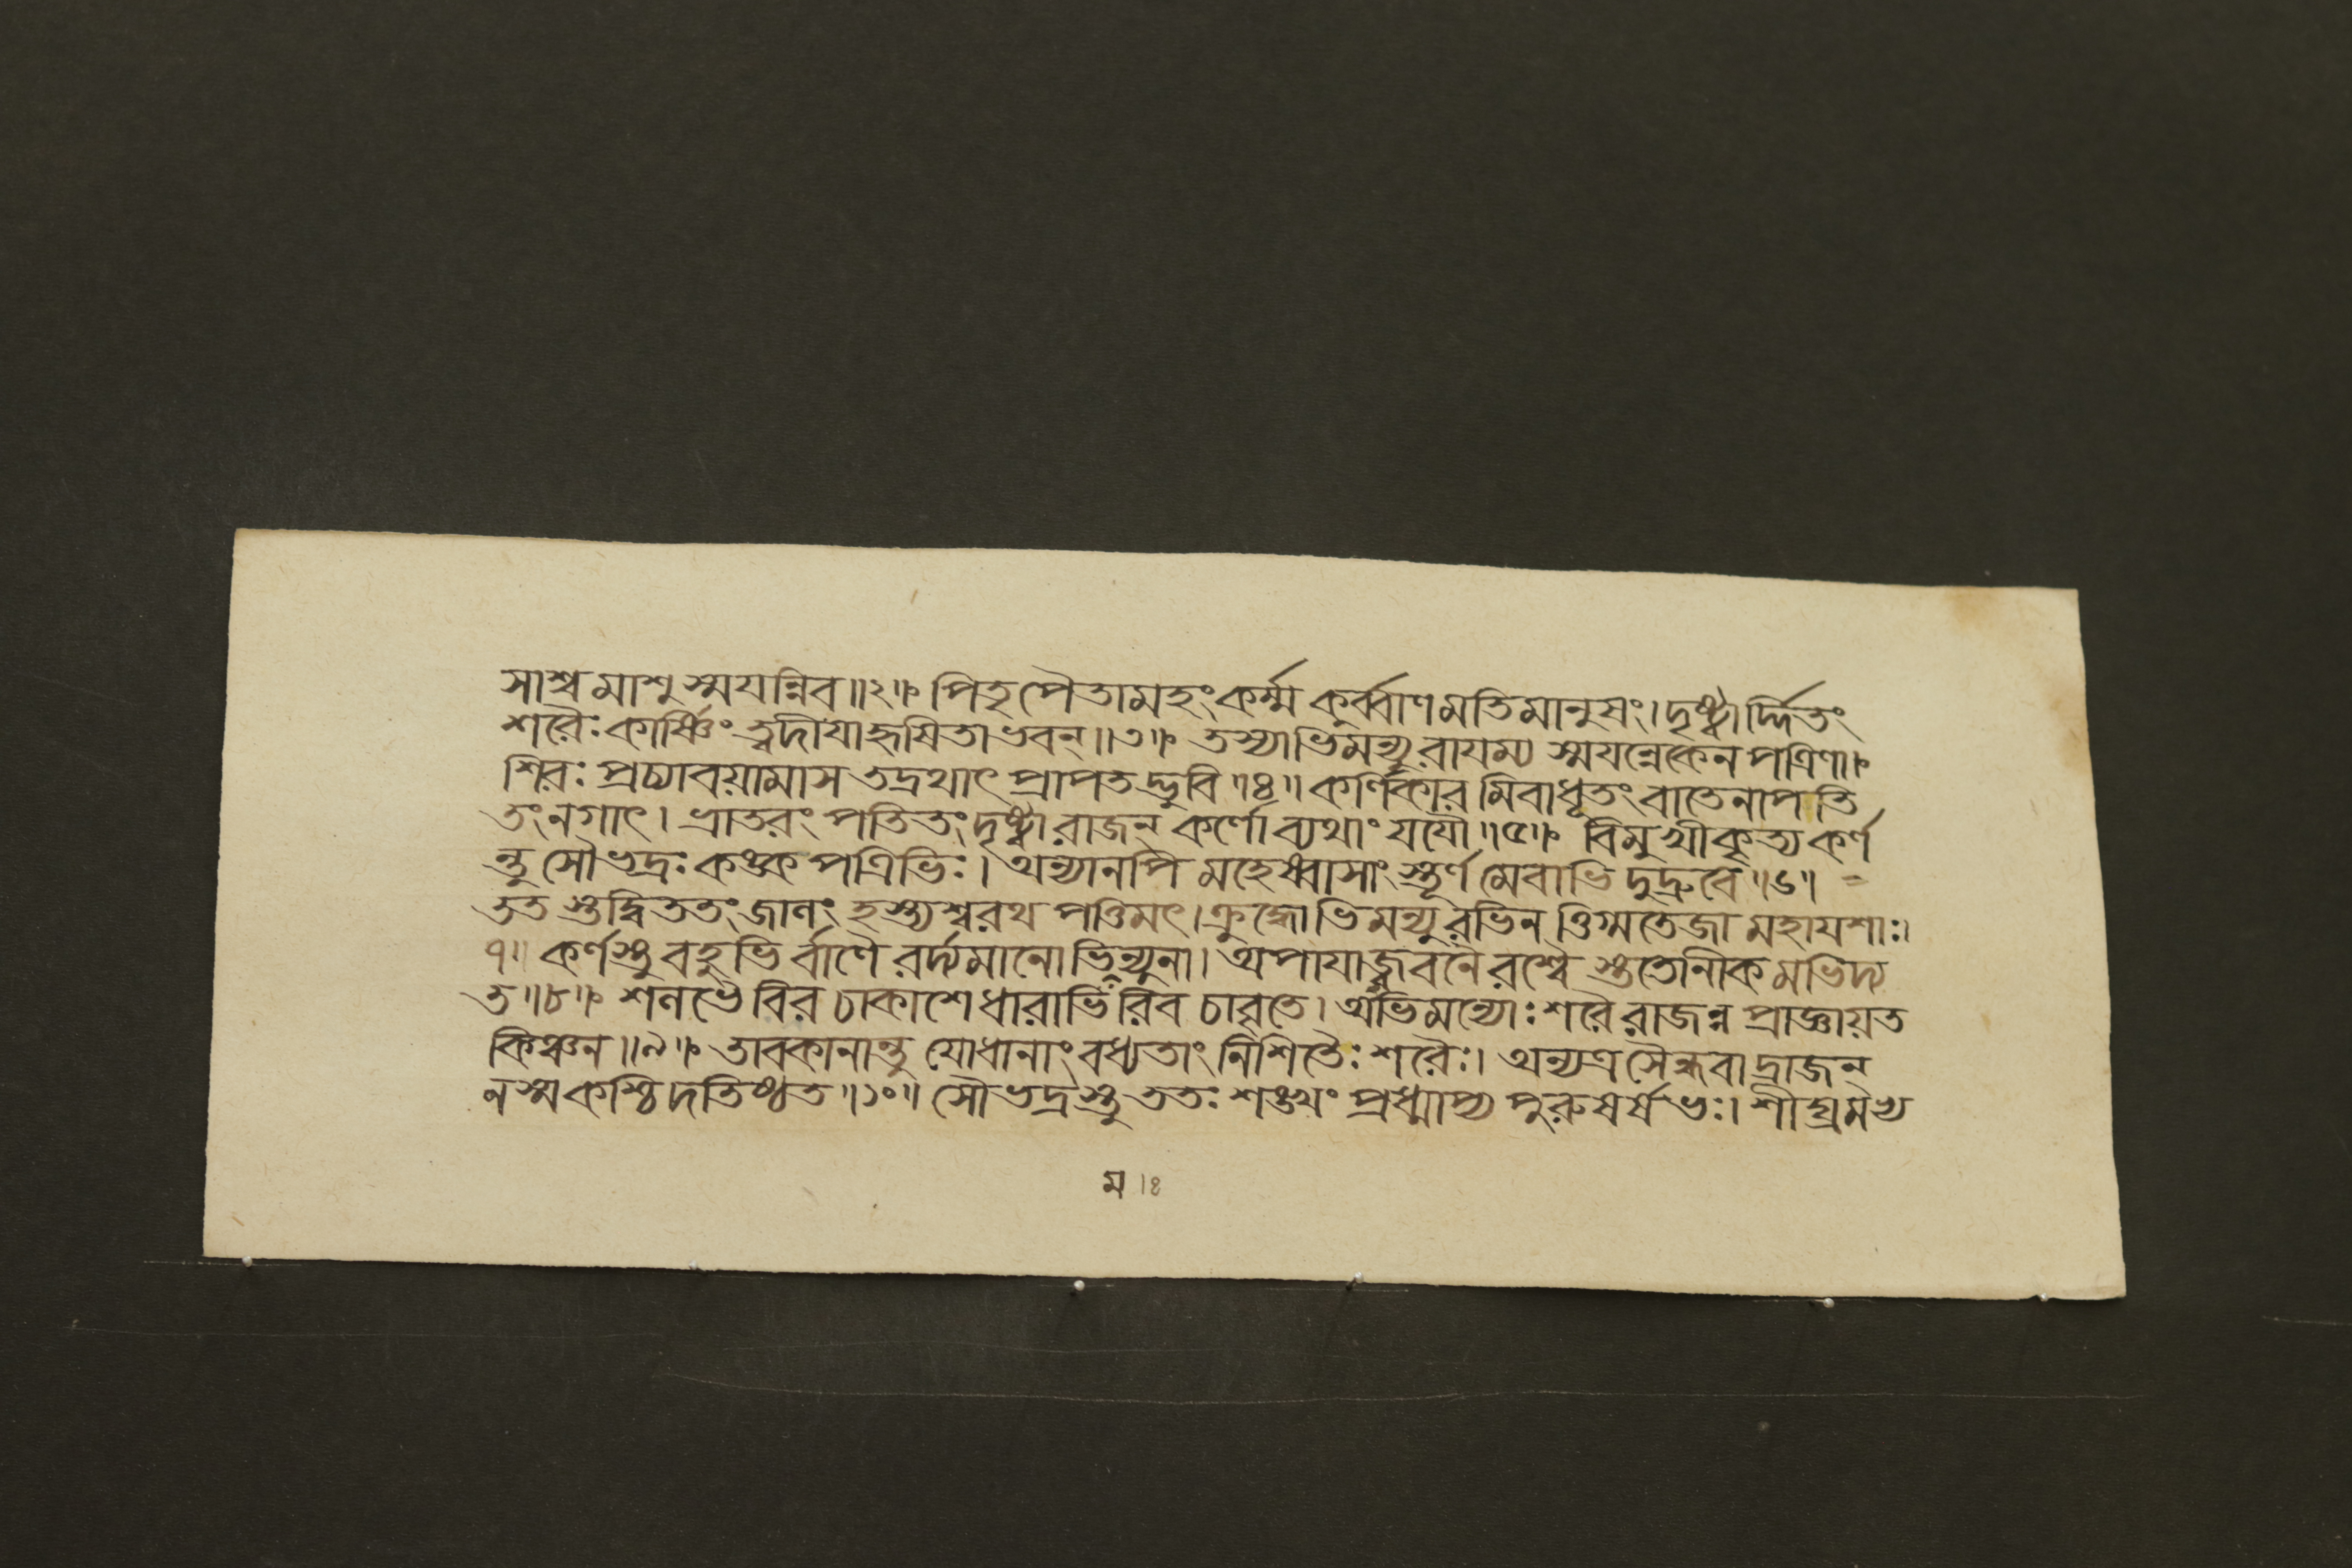 সাশ্বমাশুস্ময়ন্নিব॥২॥ পিতৃপৈতামহং কর্ম্ম কুর্ব্বাণমতিমানুষং। দৃষ্ট্বার্দ্দিতং
শরৈঃ কার্ষ্ণিং ত্বদীয়া হৃষিতাভবন্॥৩॥ তস্যাভিমন্যুরাযম্য স্ময়ন্নেকেন পত্রিণা।
শিরঃ প্রচ্যাবয়ামাস তদ্রথাৎ প্রাপতদ্ভুবি॥৪॥ কর্ণিকারমিবাধূতং বাতেনাপতি
তং নগাৎ। ভ্রাতরং পতিতং দৃষ্ট্বা রাজন্ কর্ণো ব্যথাং যযৌ॥৫॥ বিমুখীকৃত্য কর্ণ
ন্তু সৌভদ্রঃ কঙ্কপত্রিভিঃ। অন্যানপি মহেষ্বাসাংস্তূর্ণমেবাভিদুদ্রুবে॥৬॥
ততস্তদ্বিততং জালং হস্ত্যশ্বরথপত্তিমৎ। ক্রুদ্ধোভিমন্যুরভিনত্তিগ্মতেজা মহাযশাঃ।
৭॥ কর্ণস্তু বহুভির্বাণৈরর্দ্যমানোভিমন্যুনা। অপাযাজ্জবনৈরশ্বৈস্ততোনীকমভিদ্য
ত॥৮॥ শলভৈরিব চাকাশে ধারাভিরিব চাবৃতে। অভিমন্যোঃ শরৈ রাজন্ন প্রাজ্ঞায়ত
কিঞ্চন॥৯॥ তাবকানান্তু যোধানাং বধ্যতাং নিশিতৈঃ শরৈঃ। অন্যত্র সৈন্ধবাদ্রাজন্
ন স্ম কশ্চিদতিষ্ঠত॥১০॥ সৌভদ্রস্তু ততঃ শঙ্খং প্রধ্মাপ্য পুরুষর্ষভঃ। শীঘ্রমভ্য
ম।৪